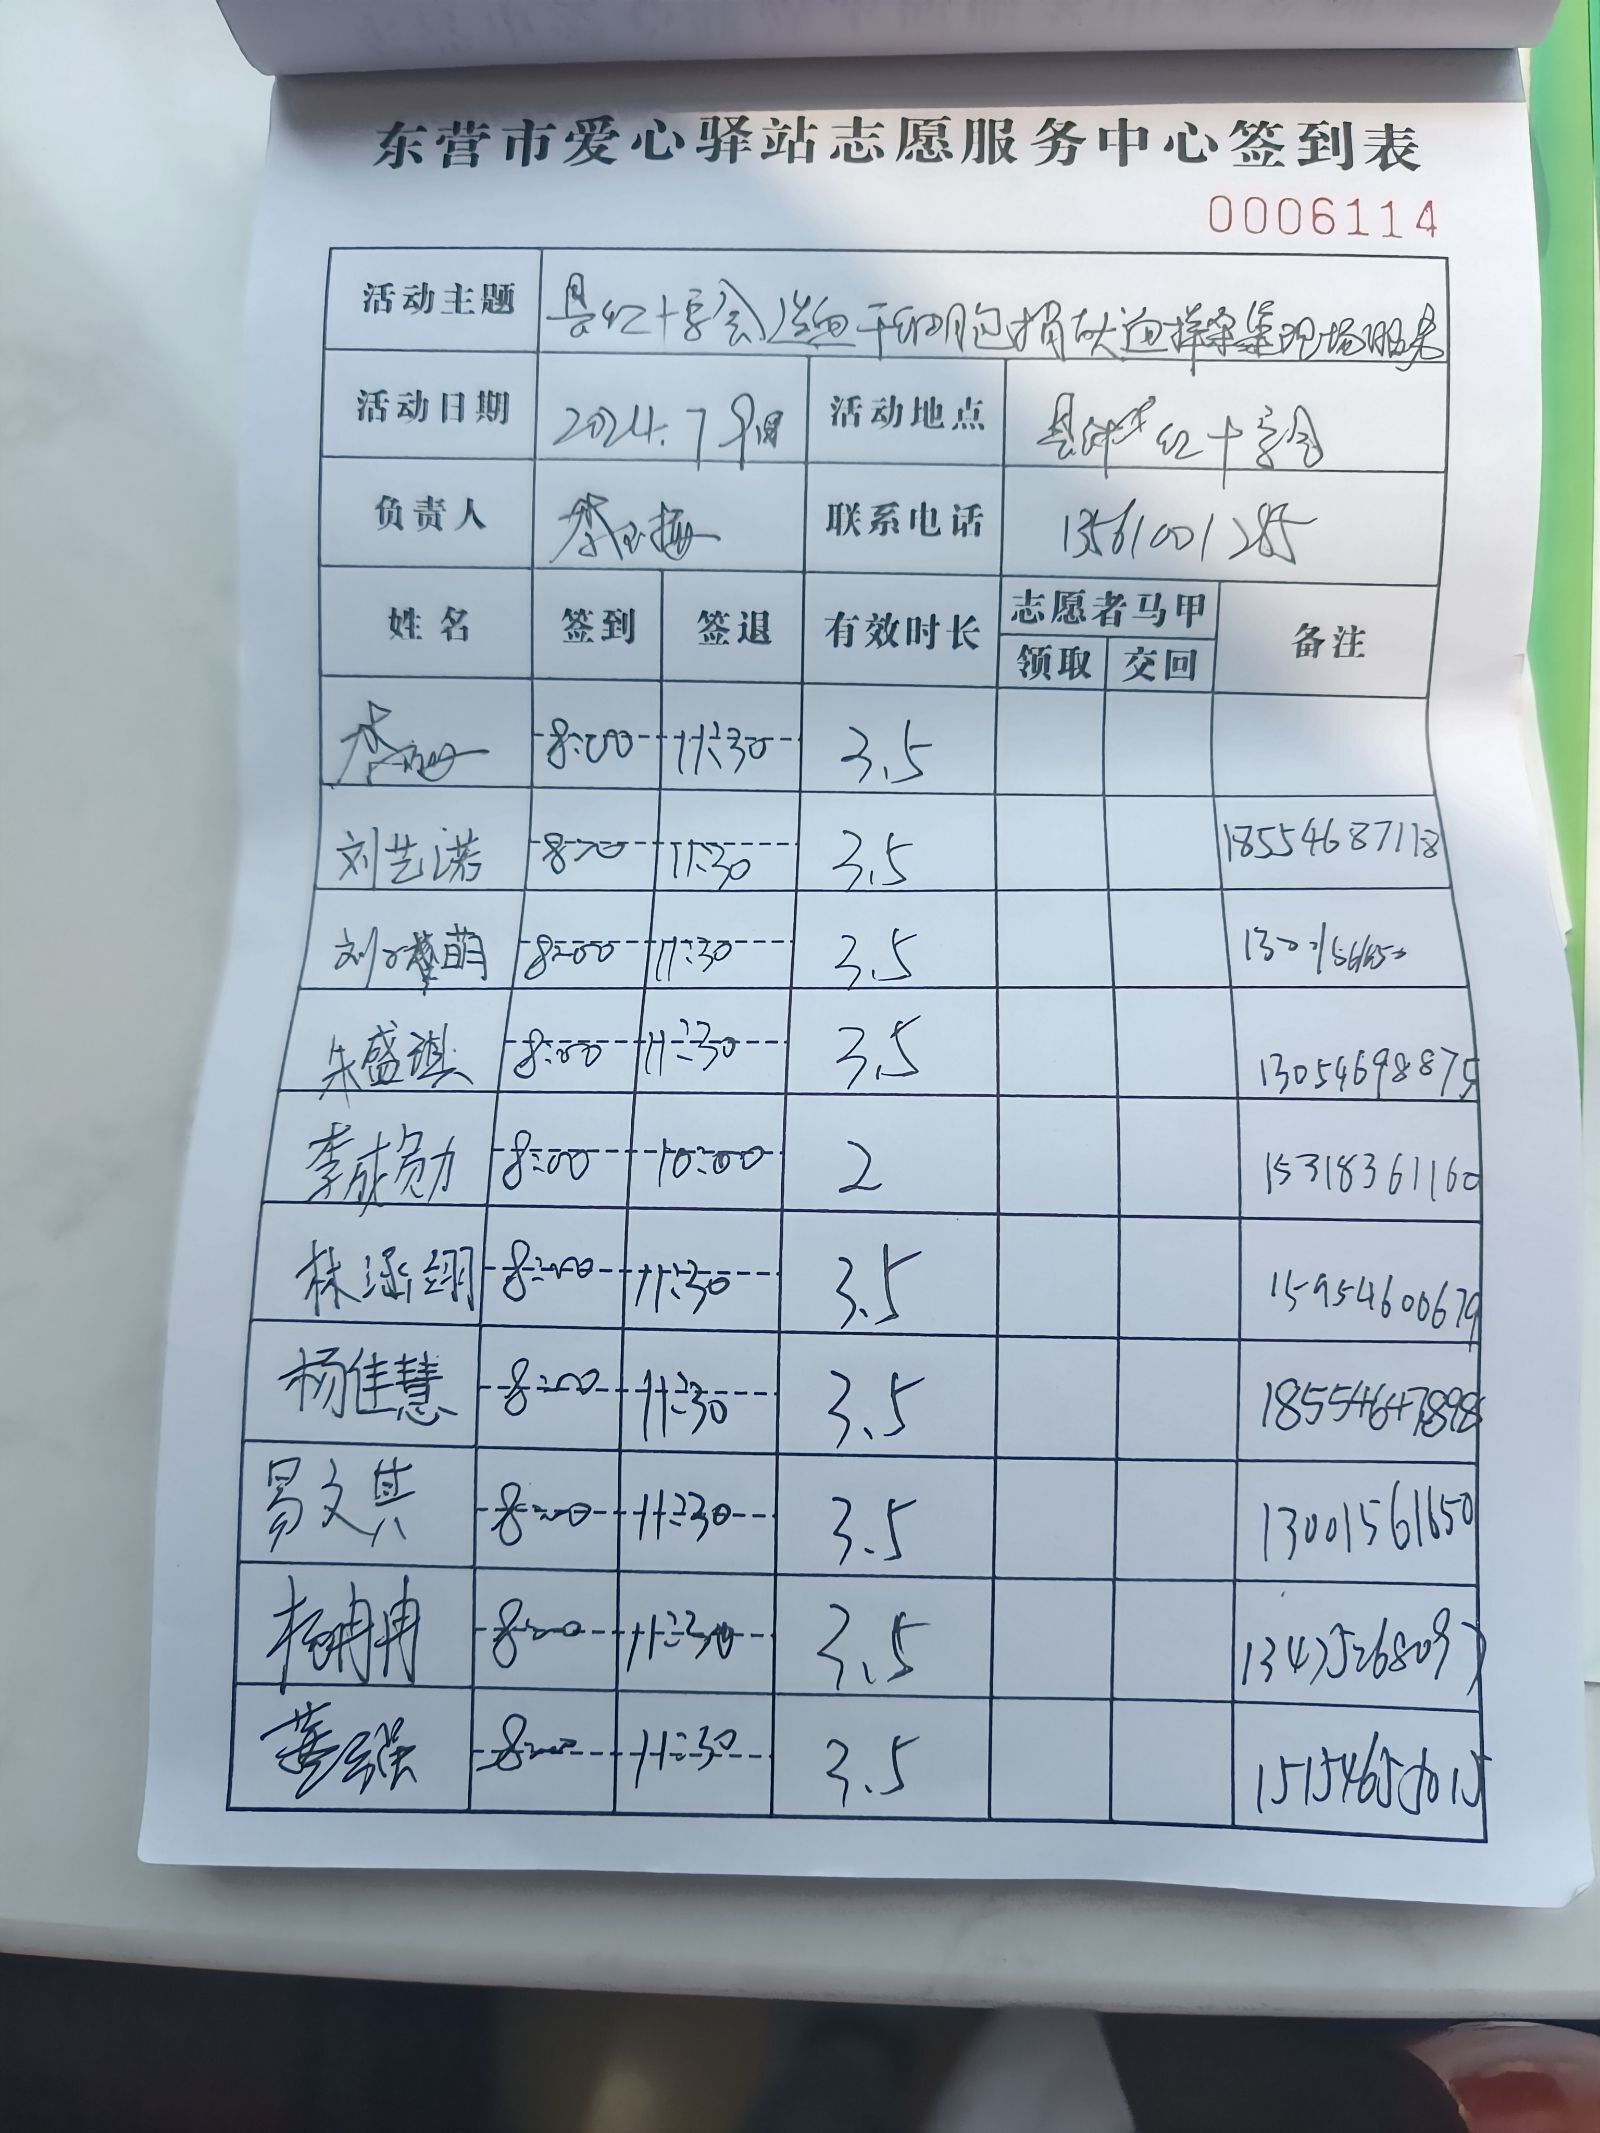 东营市爱心驿站志愿服务中心签到表
0006114
活动主题 县红十字会造血干细胞捐献血样采集现场服务
活动日期 2024.7 活动地点 县 红十字会
负责人 李玉梅 联系电话 13561001285
姓名 签到 签退 有效时长 志愿者马甲 备注
领取 交回
李 8:00 11:30 3.5
刘艺诺 8:00 11:30 3.5 18554687118
刘 萌 8:00 11:30 3.5
朱盛琪 8:00 11:30 3.5 13054698875
李成勋 8:00 10:00 2 15318361160
林涵翊 8:00 11:30 3.5 15954600679
杨佳慧 8:00 11:30 3.5
易文其 8:00 11:30 3.5 13001561650
杨冉冉 8:00 11:30 3.5
8:00 11:30 3.5